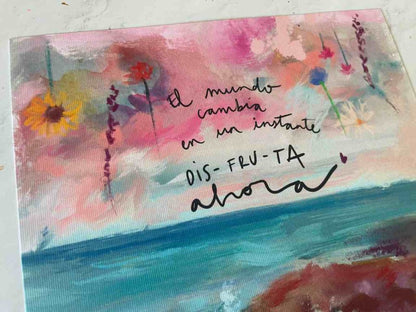 El mundo
cambia
en un instante
DIS-FRU-TA
ahora